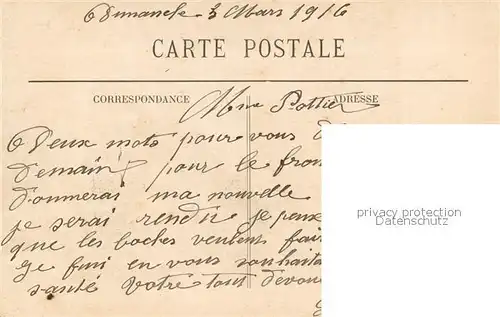 Dimanche 5 Mars 1916
CARTE POSTALE
CORRESPONDANCE
ADRESSE
Mme Pottier
Deux mots pour vous
Demain pour le fron
donnerai ma nouvelle
je serai rendu je peux
que les boches veulent fair
Je fini en vous souhaita
santé Votre tout dévou
privacy protection
Datenschutz